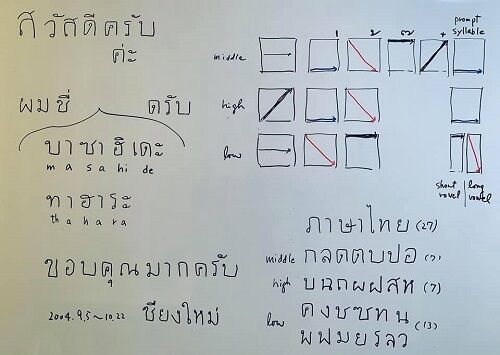 สวัสดีครับ
ค่ะ
ผมชื่ ครับ
มาซาฮิเดะ
masahide
ทาฮาระ
thahara
ขอบคุณมากครับ
2004.9.5~10.22 เชียงใหม่
prompt
syllable
middle
high
low
short vowel | long vowel
ภาษาไทย (27)
middle กจดตบปอ (7)
high ขฉถผฝสห (7)
low คงชซทน (13)
พฟมยรลว